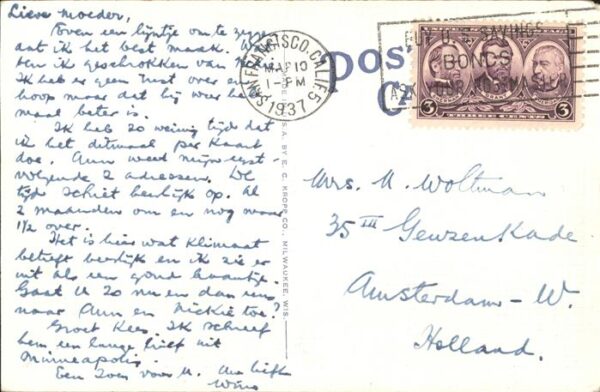 Lieve Moeder,
Even een lijntje om te zeggen
dat ik het best maak. Wat
ben ik geschrokken van
Ik heb er geen rust over en
hoop maar dat hij weer he
maal beter is.
Ik heb zo weinig tijd dat
ik het ditmaal per kaart
doe. Ann weed mijn eerst-
volgende 2 adressen. De
tijd schiet heerlijk op. Al
2 maanden om en nog maar
1½ over.
Het is hier wat klimaat
betreft heerlijk en ik zie er
uit als een goud haantje.
Gaat U zo nu en dan eens
naar Ann en Nickie toe?
Groet Kees. Ik schreef
hem een lange brief uit
Minneapolis.
Een zoen voor U. Uw liefh
Wims
U.S.A. BY E. C. KROPP CO., MILWAUKEE, WIS.
SAN FRANCISCO, CALIF. 5
MAR 10
1-PM
1937
POS
CA
BUY U.S. SAVINGS
BONDS
3
3
Mrs. M. Woltman
35 III Geuzenkade
Amsterdam-W.
Holland.